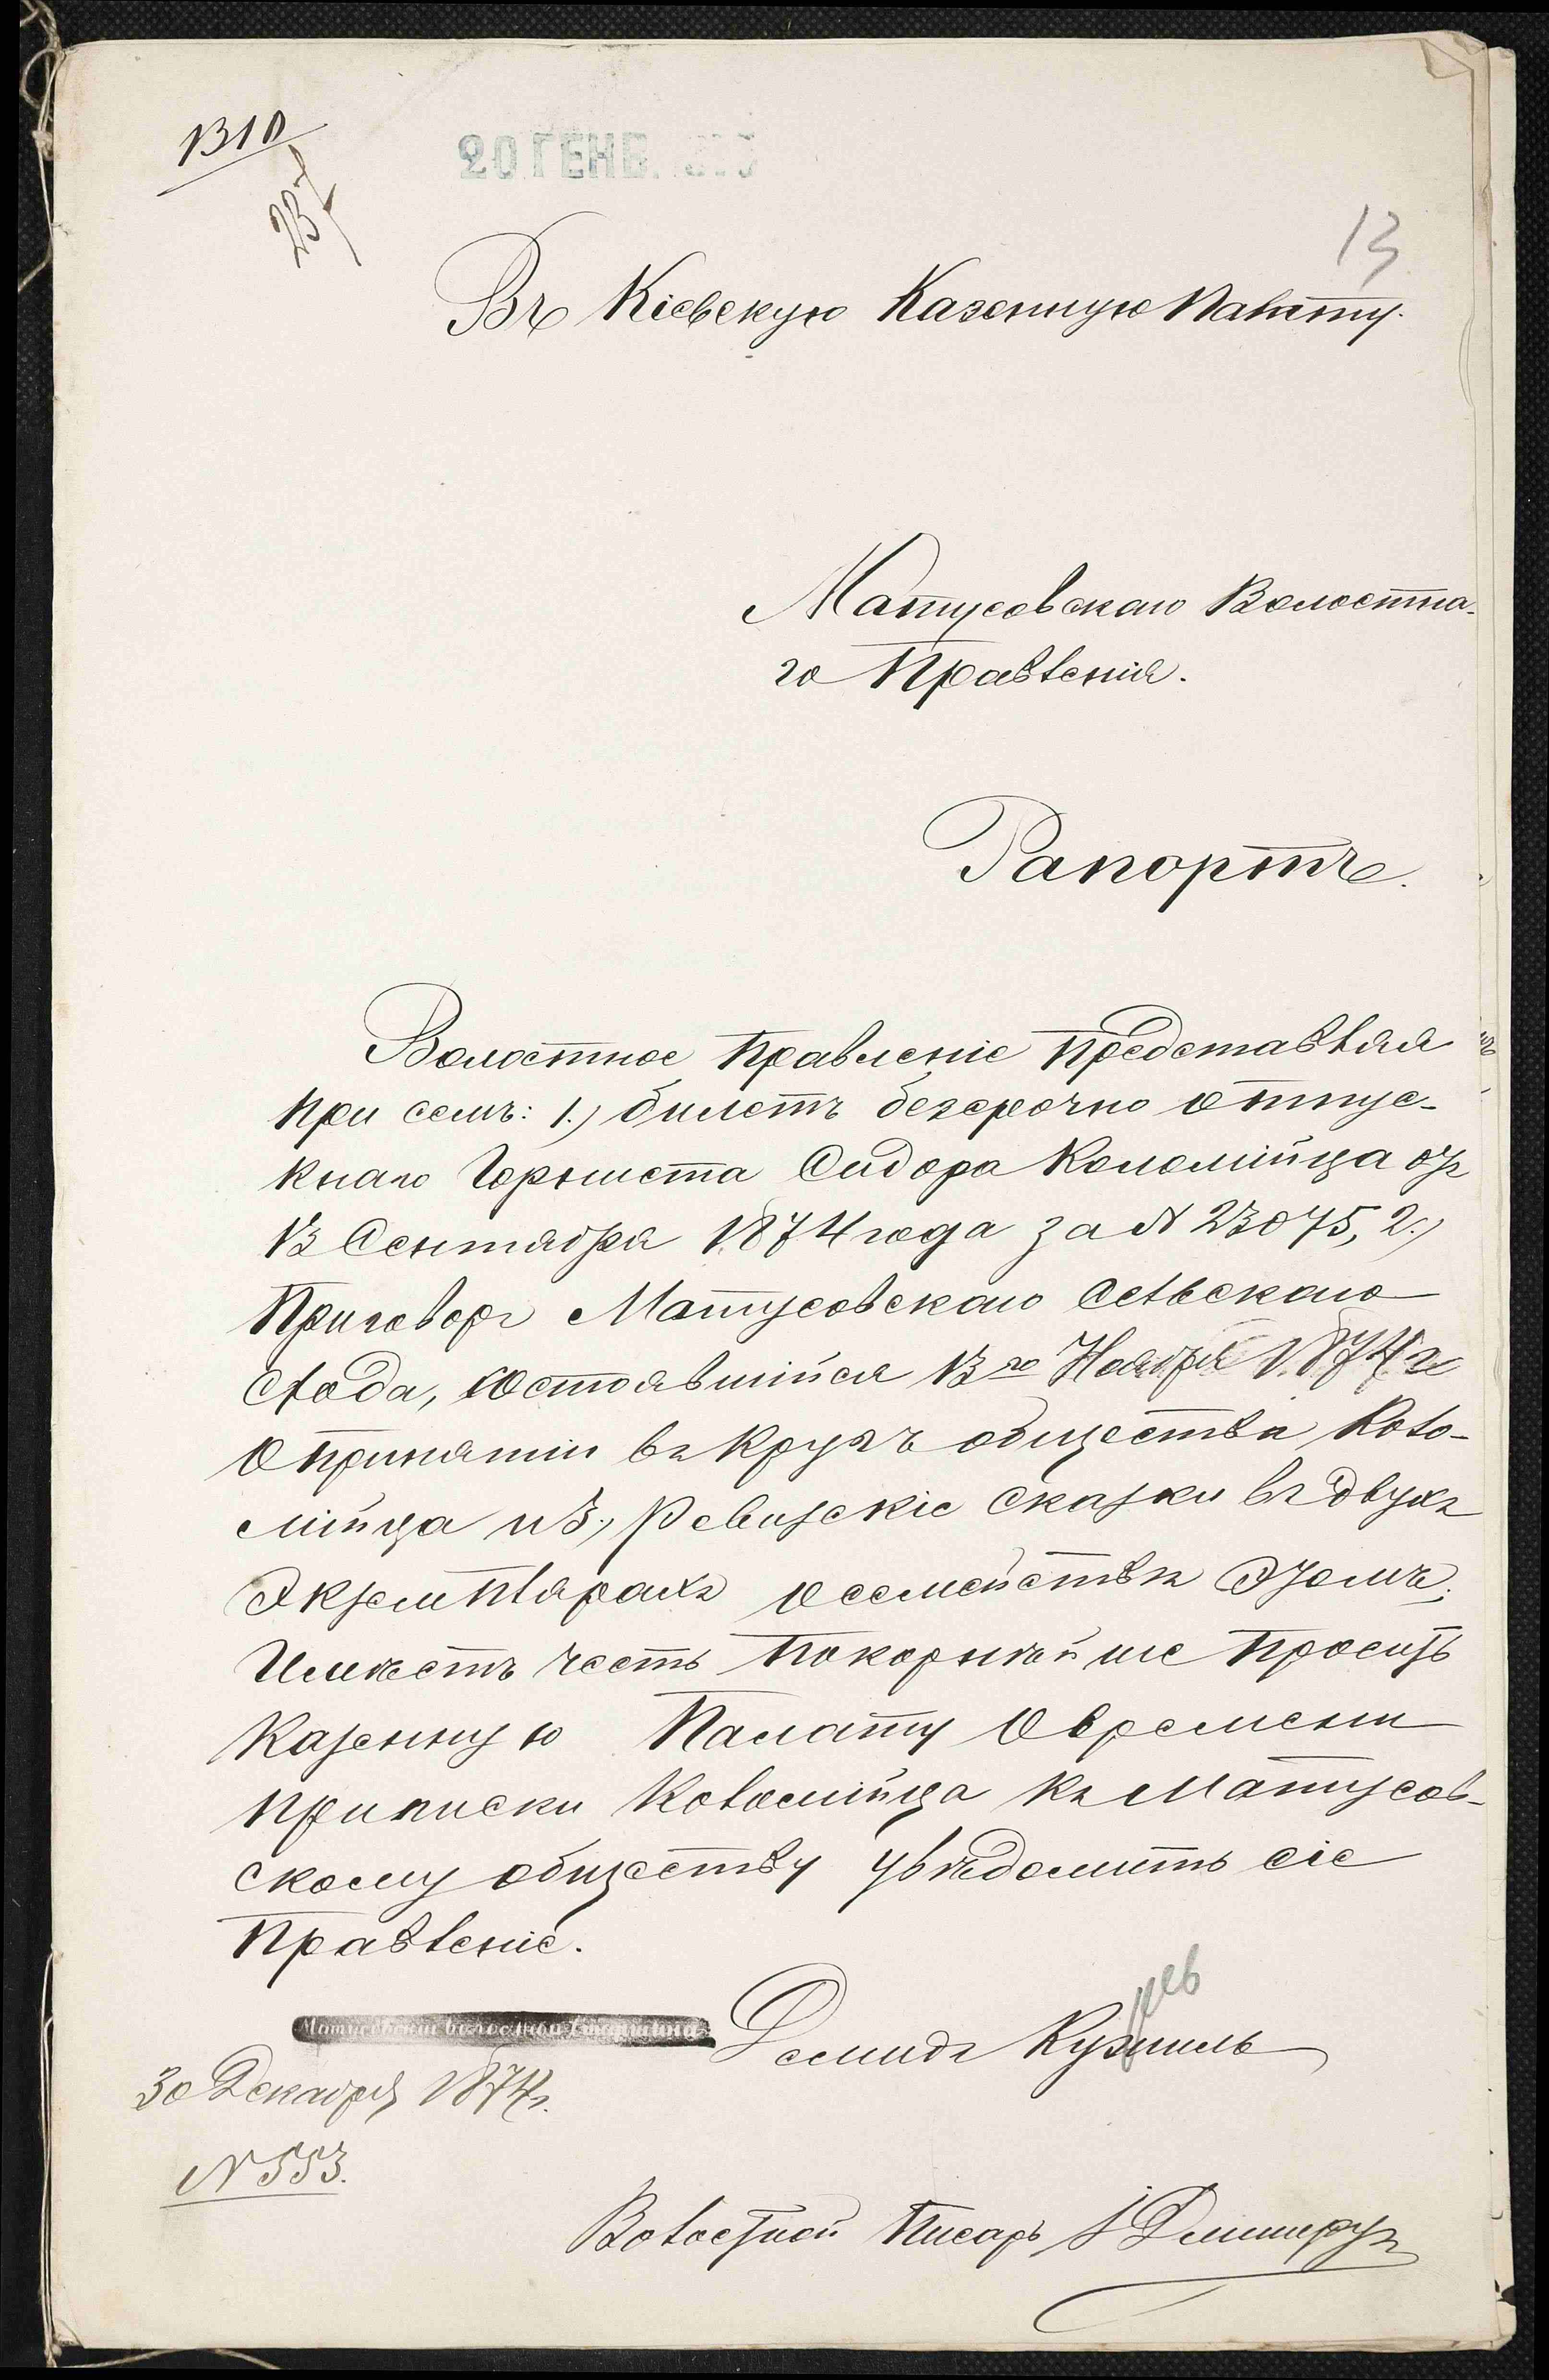 1310
237
20 ГЕНВ. 1875
13
Въ Кіевскую Казенную Палату.
Матусовскаго Волостна-
го Правленія.
Рапортъ.
Волостное Правленіе представляя
при семъ: 1.) билетъ безсрочно отпус-
кнаго Горниста Сидора Коломійца отъ
13 Сентября 1874 года за № 23075, 2.)
Приговоръ Матусовскаго Сельскаго
Схода, состоявшійся 13го Ноября 1874 г
о принятіи въ кругъ общества Коло-
мійца и 3.) Ревизскіе Сказки въ двухъ
Экземплярахъ о семействѣ Этомъ;
Имѣетъ честь покорнѣйше просить
Казенную Палату о времени
приписки Коломійца къ Матусов-
скому обществу увѣдомить сіе
Правленіе.
Матусовскій волостной Старшина
Демидъ Кузмиль
30 Декабря 1874 г.
№ 553.
Волостной Писарь